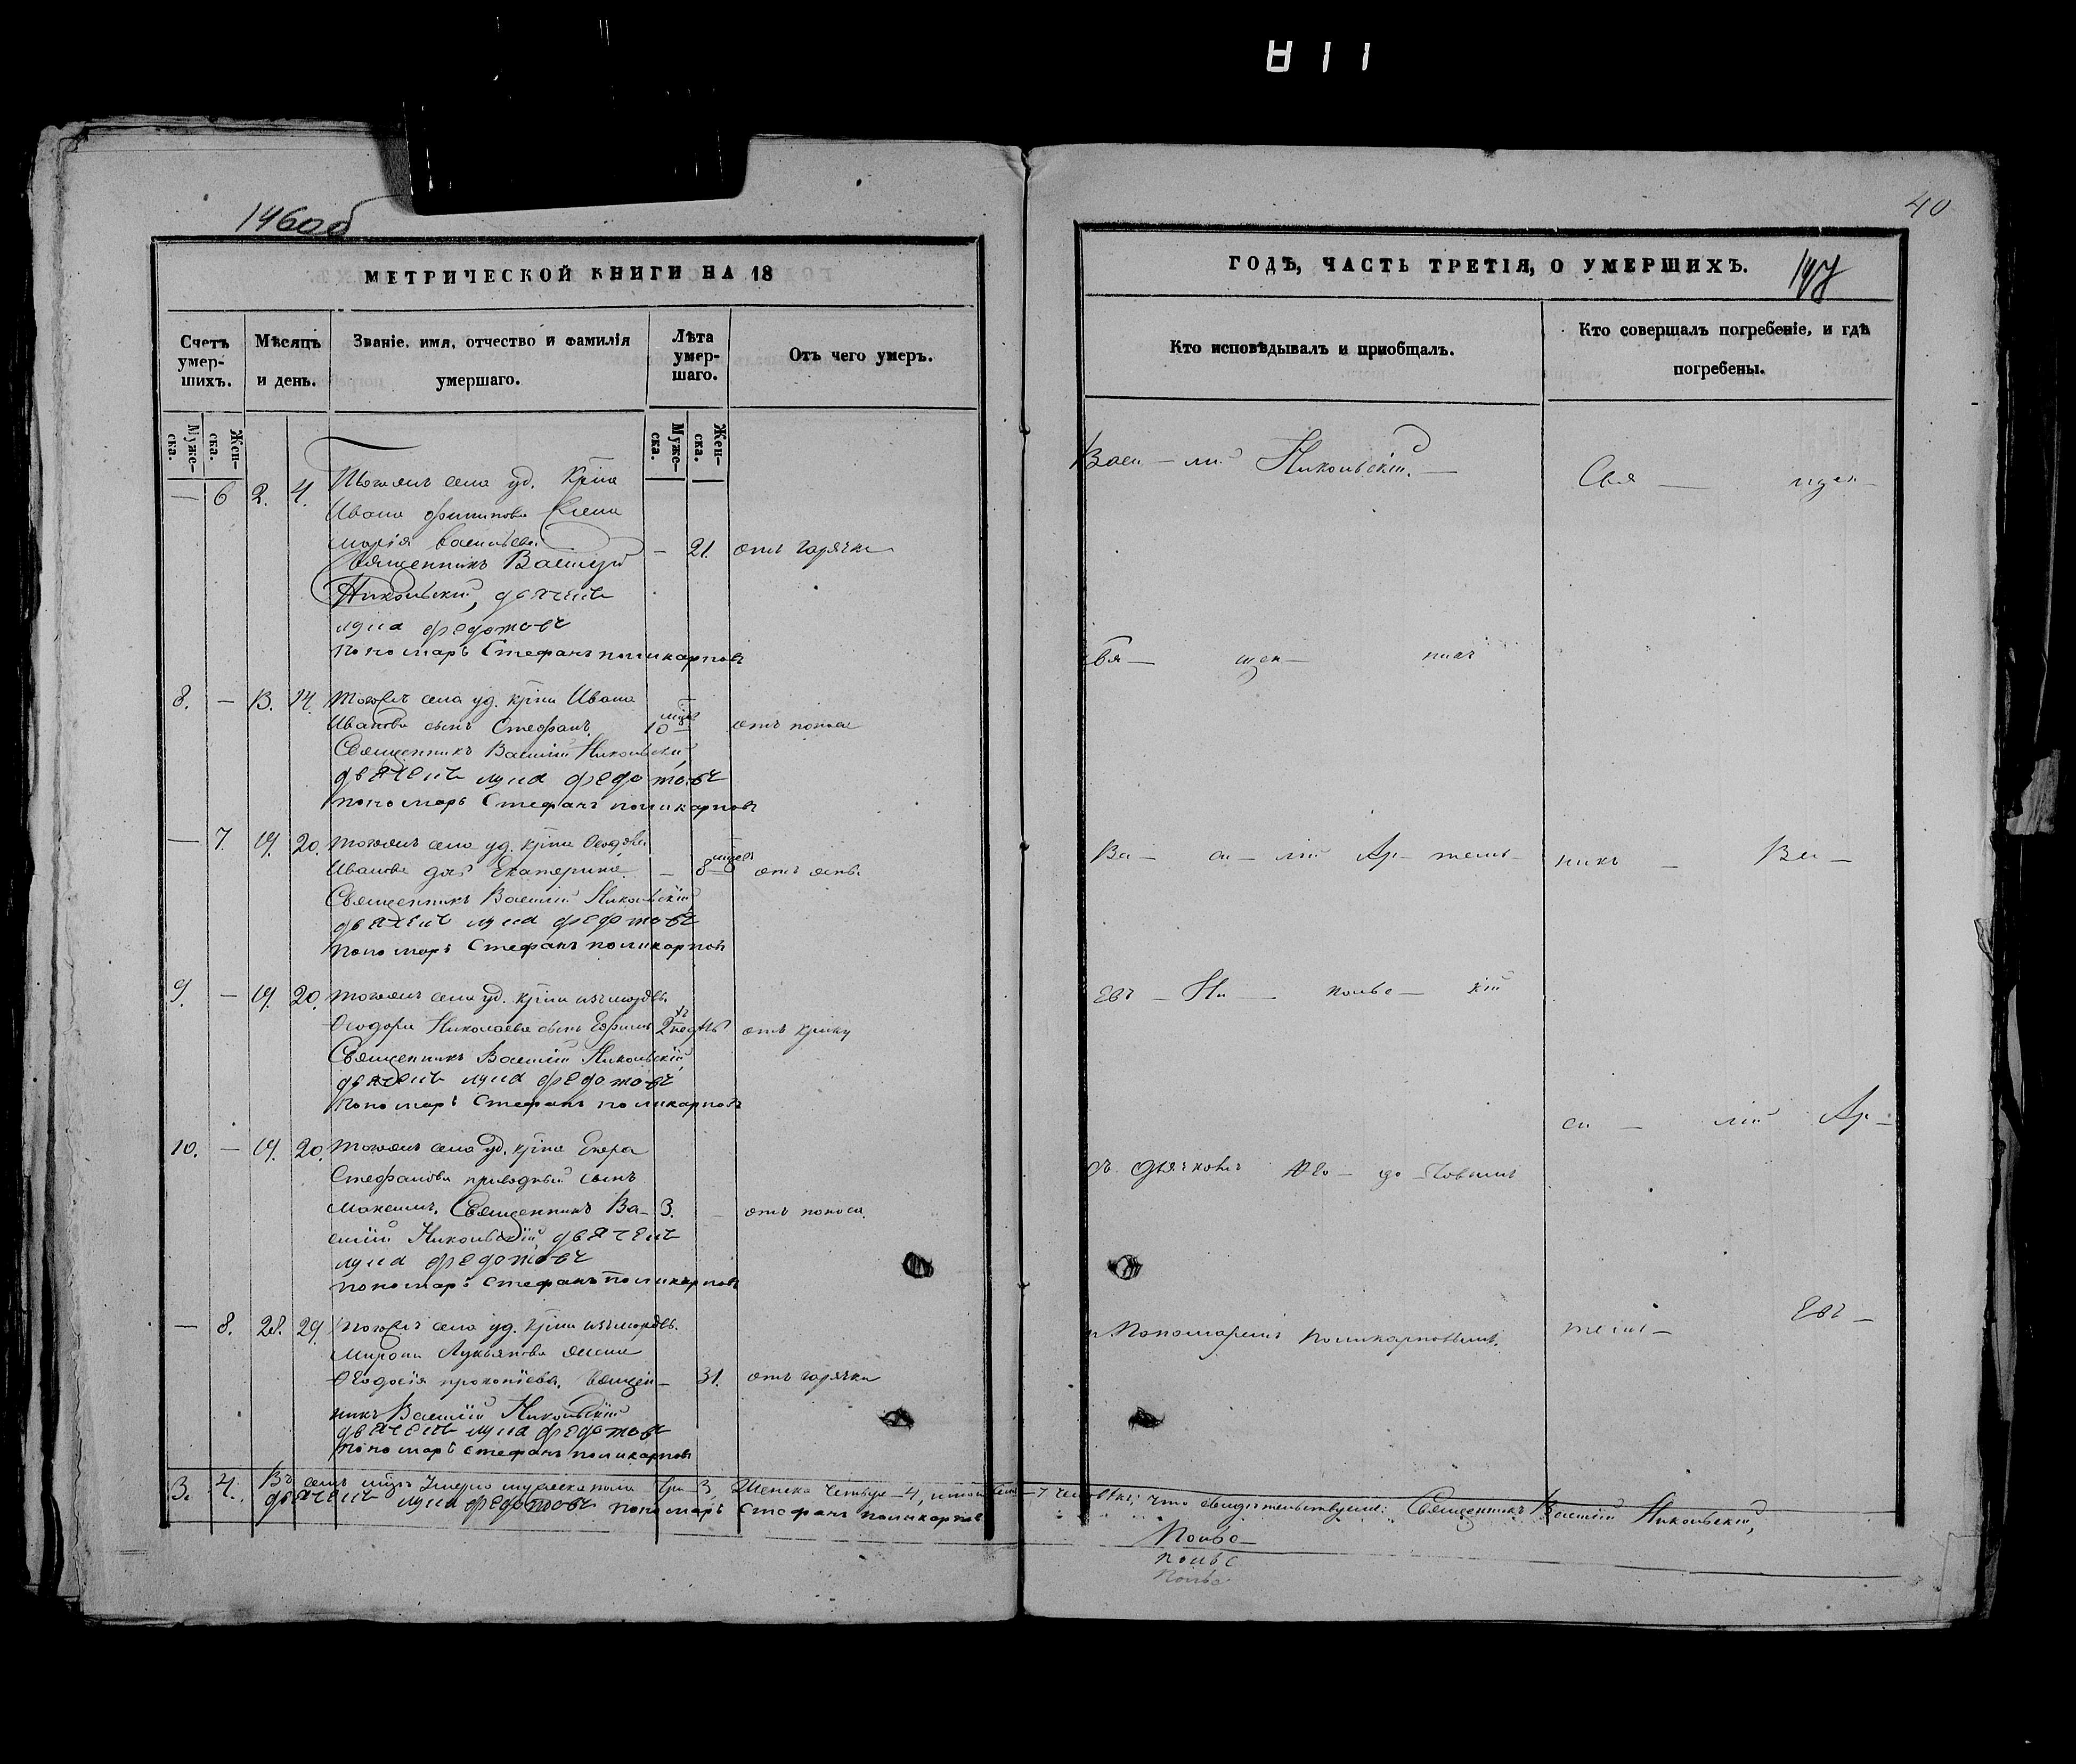 1460об
МЕТРИЧЕСКОЙ КНИГИ НА 18
Счетъ умер-шихъ.
Мѣсяцъ и день.
Званіе, имя, отчество и фамилія умершаго.
Лѣта умер-шаго.
Отъ чего умеръ.
Муже-ска.
Жен-ска.
Муже-ска.
Жен-ска.
— 6 2. 4. Тогожъ села уд. Крtна
Ивана Филипова жена
Марія Васильева — 21. отъ горячки
Священникъ Василій
Никольскій, дьячекъ
Лука Федотовъ
Пономарь Стефанъ Поликарповъ
8. — 13. 14. Тогожъ села уд. крtна Ивана
Иванова сынъ Стефанъ. 10 отъ поноса
Священникъ Василій Никольскій
дьячекъ Лука Федотовъ
пономарь Стефанъ Поликарповъ
— 7. 19. 20. Тогожъ села уд. крtна Ѳеодора
Иванова дочь Екатерина — 8 отъ оспы
Священникъ Василій Никольскій
дьячекъ Лука Федотовъ
пономарь Стефанъ Поликарповъ
9. — 19. 20. Тогожъ села уд. крtна
Ѳеодора Николаева сынъ Ефимъ 2 недѣль отъ крику
Священникъ Василій Никольскій
дьячекъ Лука Федотовъ
Пономарь Стефанъ Поликарповъ
10. — 19. 20. Тогожъ села уд. крtна Егора
Стефанова сынъ
Максимъ. Священникъ Ва- 3. — отъ поноса
силій Никольскій дьячекъ
Лука Федотовъ
пономарь Стефанъ Поликарповъ
— 8. 28. 29. Тогожъ села уд. крtна
Мирона Лукьянова жена
Ѳеодосія Прокопіева. Священ- 31. отъ горячки
никъ Василій Никольскій
дьячекъ Лука Федотовъ
пономарь Стефанъ Поликарповъ
3. 4. Въ семъ мцѣ умерло мужеска пола три—3, Женска четыре—4, итого семь—7 человѣкъ; что свидѣтельствуемъ: Священникъ Василій Никольскій,
дьячекъ Лука Федотовъ пономарь Стефанъ Поликарповъ
40
ГОДЪ, ЧАСТЬ ТРЕТІЯ, О УМЕРШИХЪ.
147
Кто исповѣдывалъ и пріобщалъ.
Кто совершалъ погребеніе, и гдѣ погребены.
Васи — лій Никольскій. —
Свя — щен —
Свя — щен — никъ
Ва — си — лій Ар — темь —
никъ — Ва —
евъ — Ни — кольс — кій
си — лій Ар —
съ Дьячкомъ Фе — до — товымъ
и Пономаремъ Поликарповымъ.
темь — евъ —
Кольс —
кольс
кольс